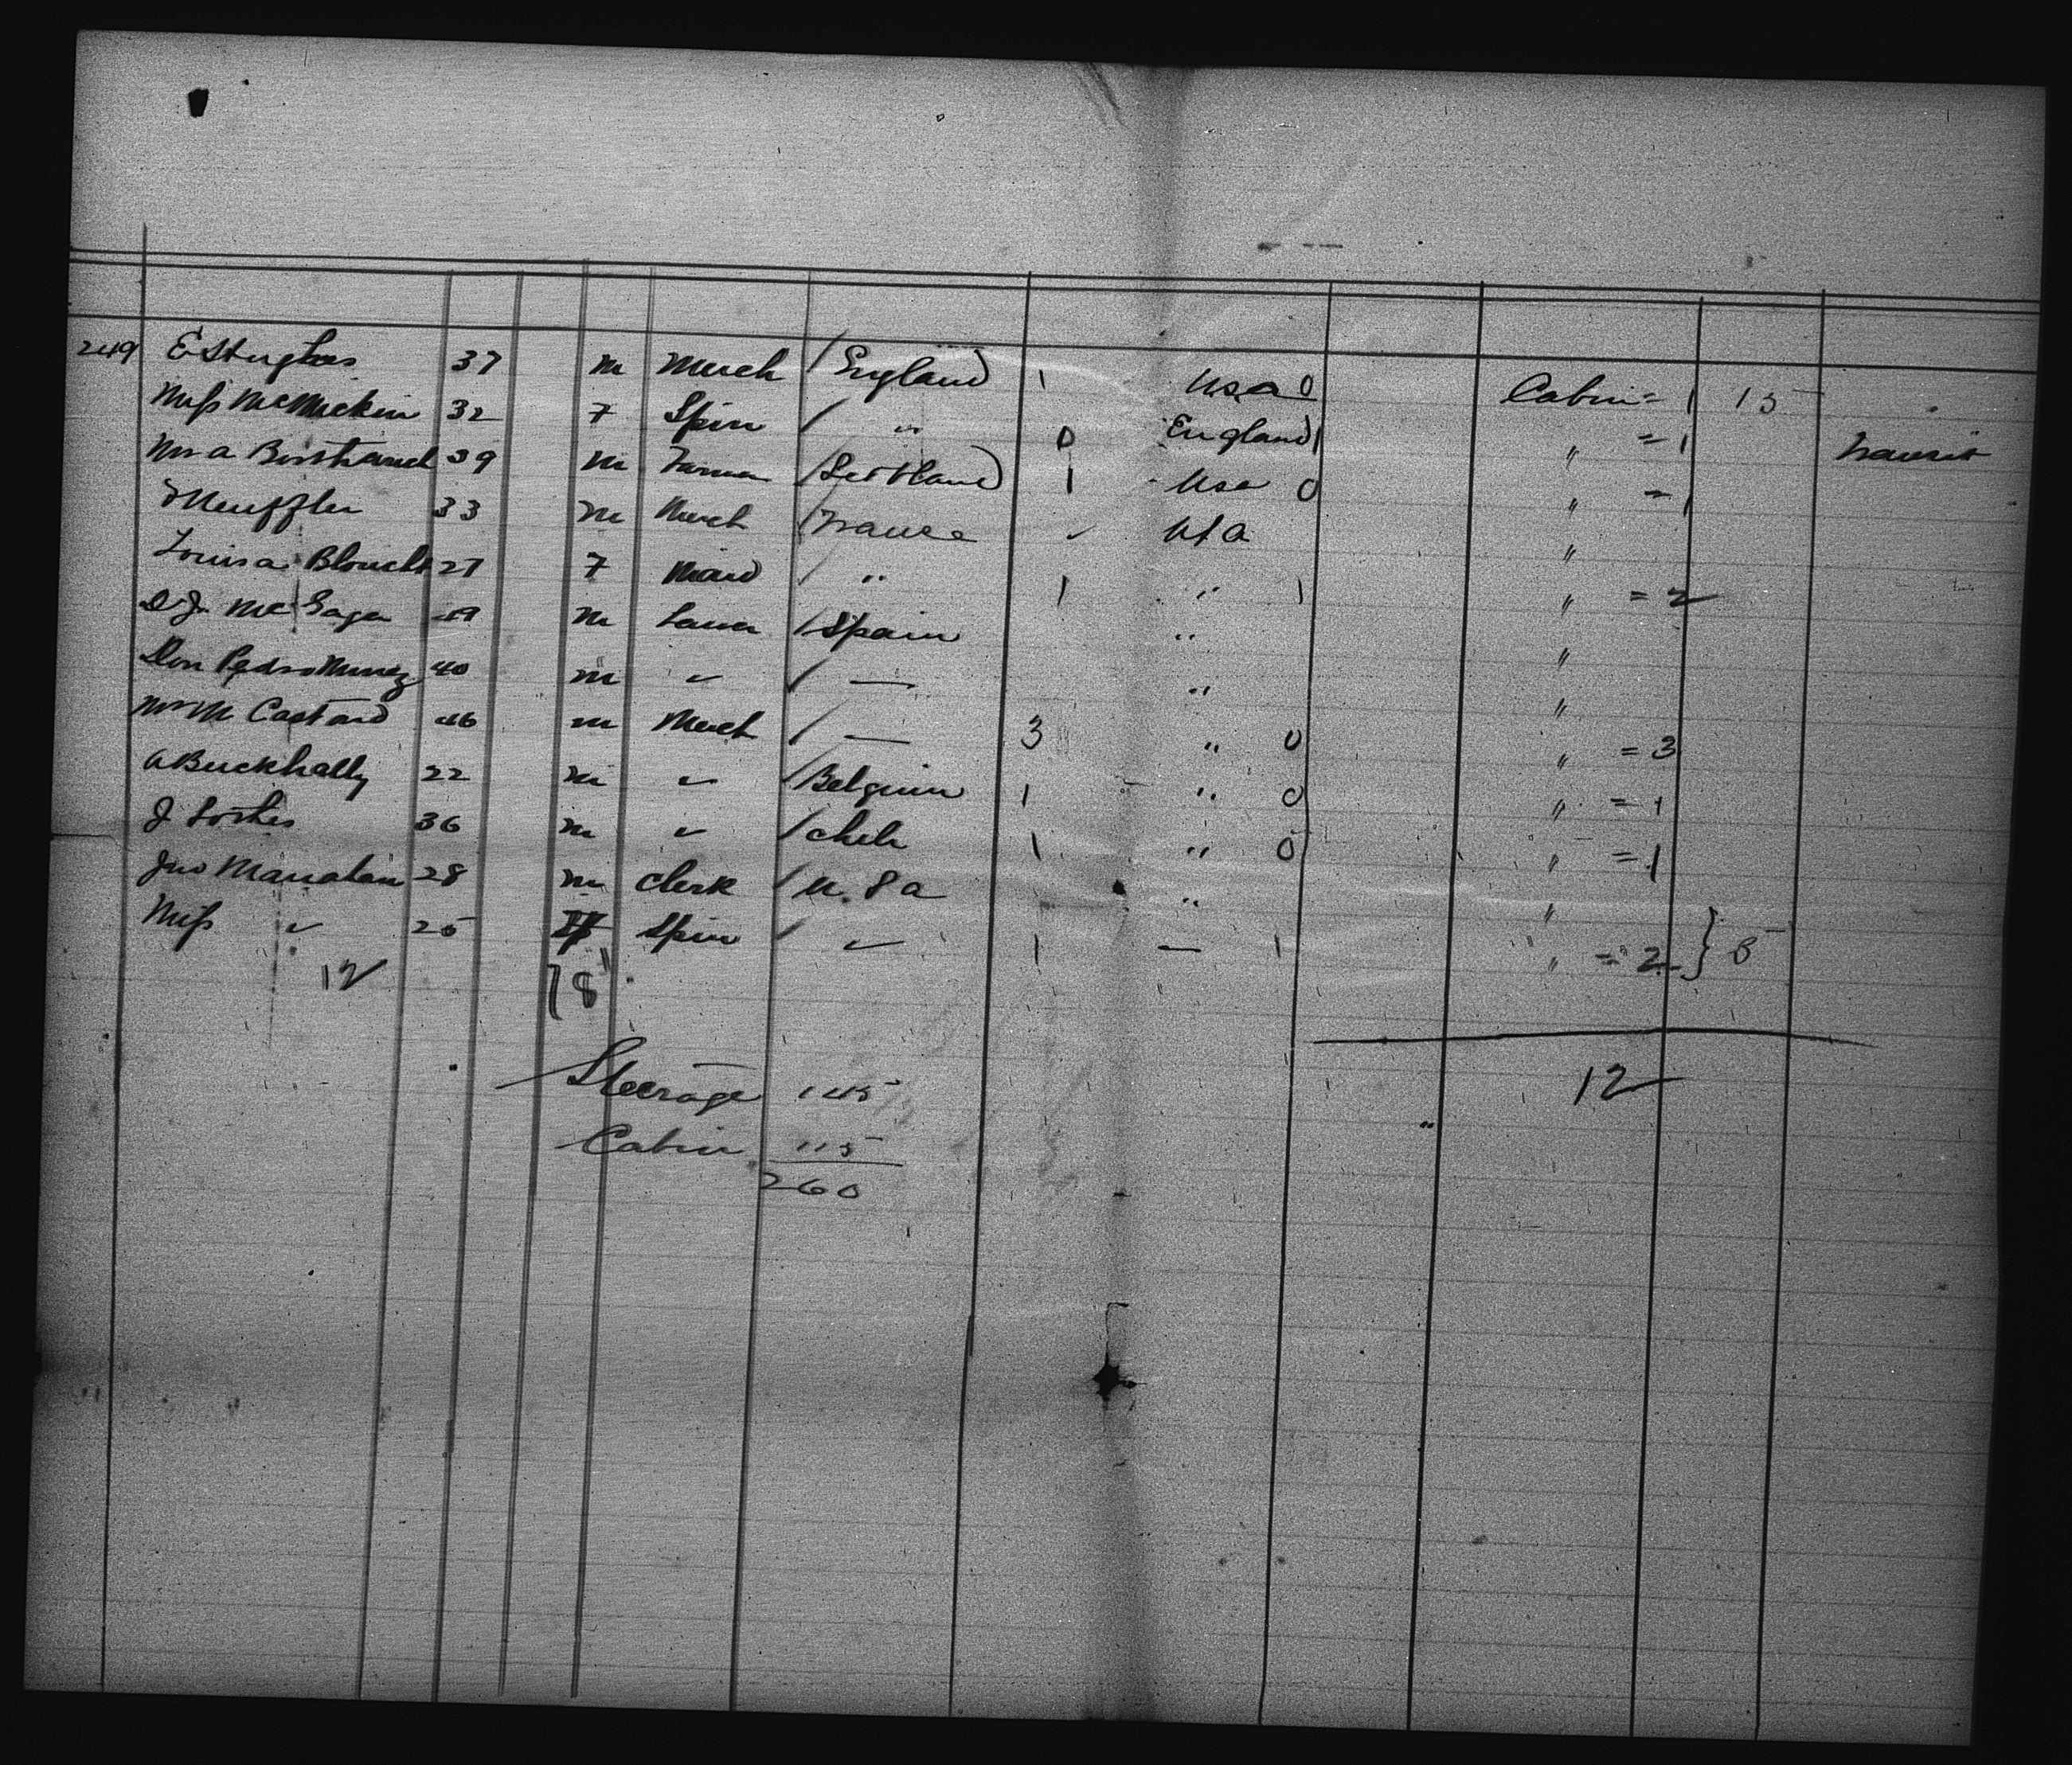 249 E S Hughes 37 m Merch / England 1 Usa 0 Cabin = 1 15
Miss McMickin 32 F Spin / " 0 England 1 " = 1 Transit
Mr A 39 m Farmer / Scotland 1 Usa 0 " = 1
33 m Merch / France ✓ USA "
Louisa 27 F Maid / " 1 " 1 " = 2
49 m / Spain " "
Don Pedro Munez 40 m " / — " "
Mr M Castano 46 m Merch / — 3 " 0 " = 3
A Buckhally 22 m " / Belgium 1 " 0 " = 1
J 36 m " / Chili 1 " 0 " = 1
Jno Manahan 28 m Clerk / U.S a " "
Miss " 25 F Spin / " 1 — 1 " = 2 } 8
12 7 8
Steerage 145 12
Cabin 115
260